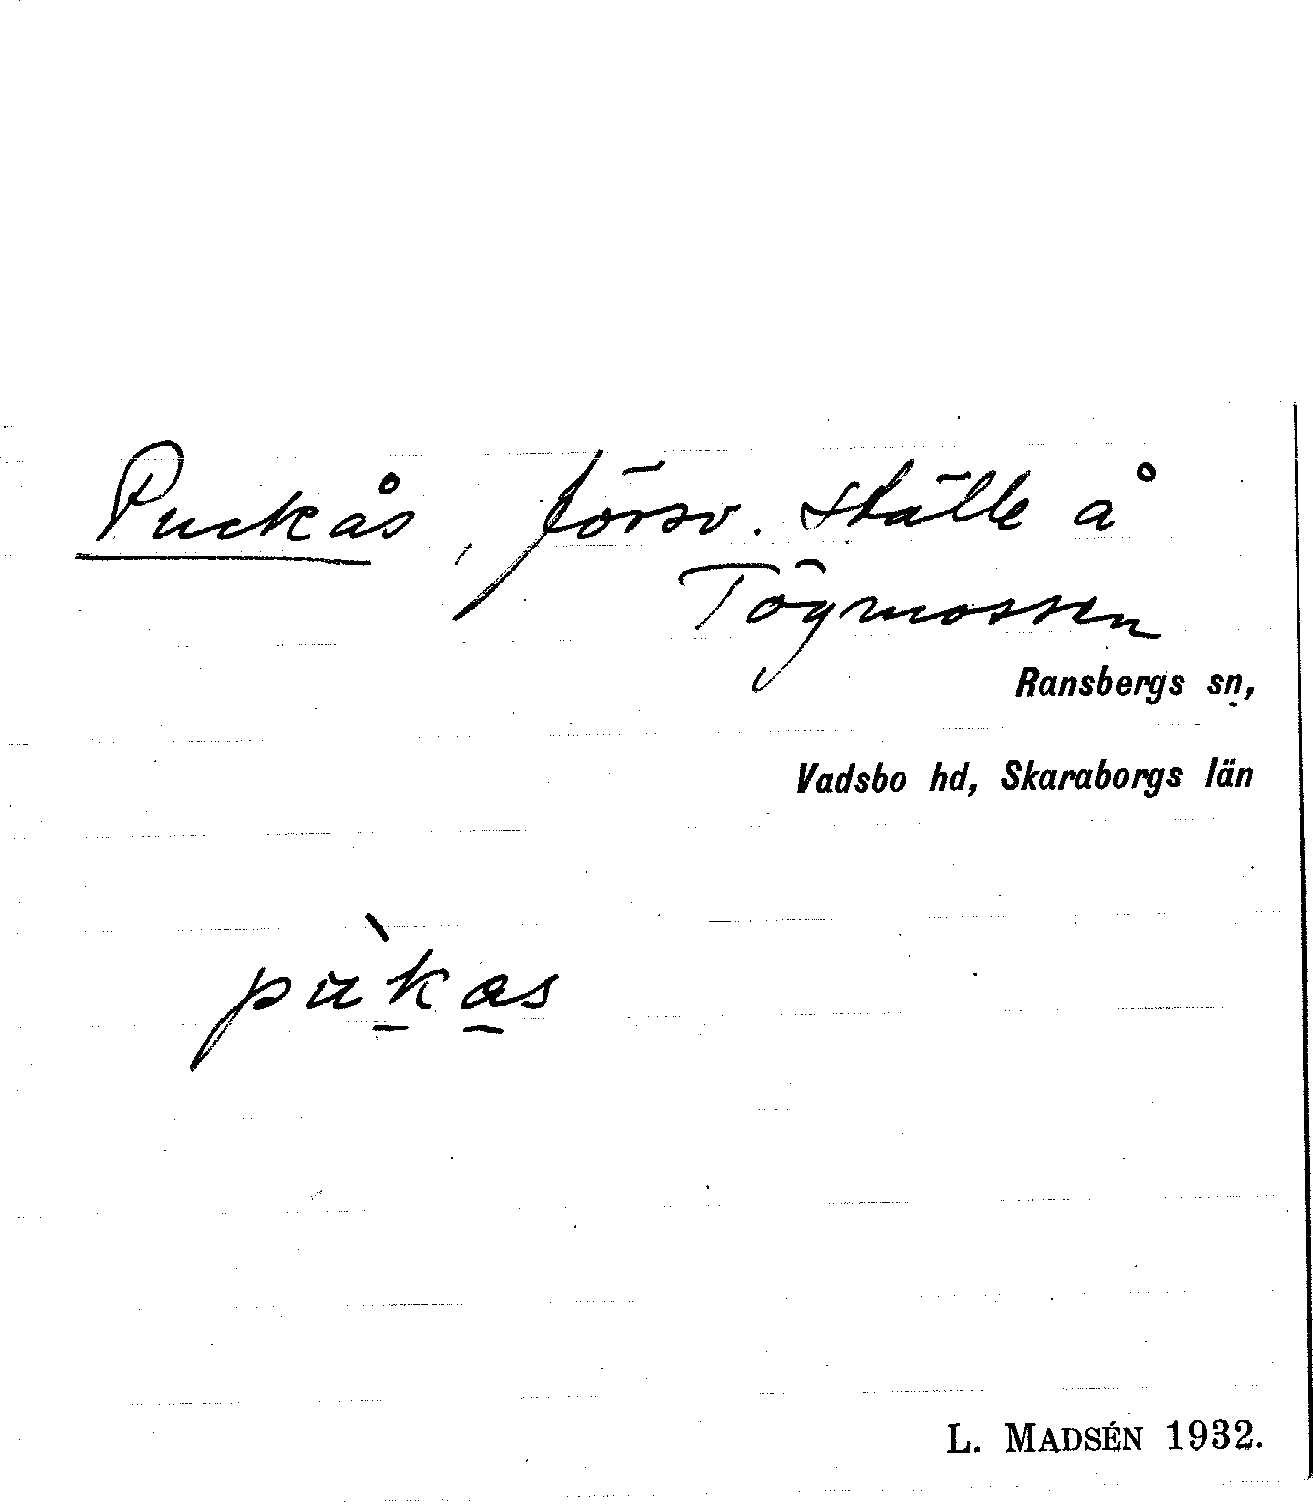 Puckås, försv. ställe å
Tögmossen
Ransbergs sn,
Vadsbo hd, Skaraborgs län
pu̇̀k̠a̠s
L. MADSÉN 1932.